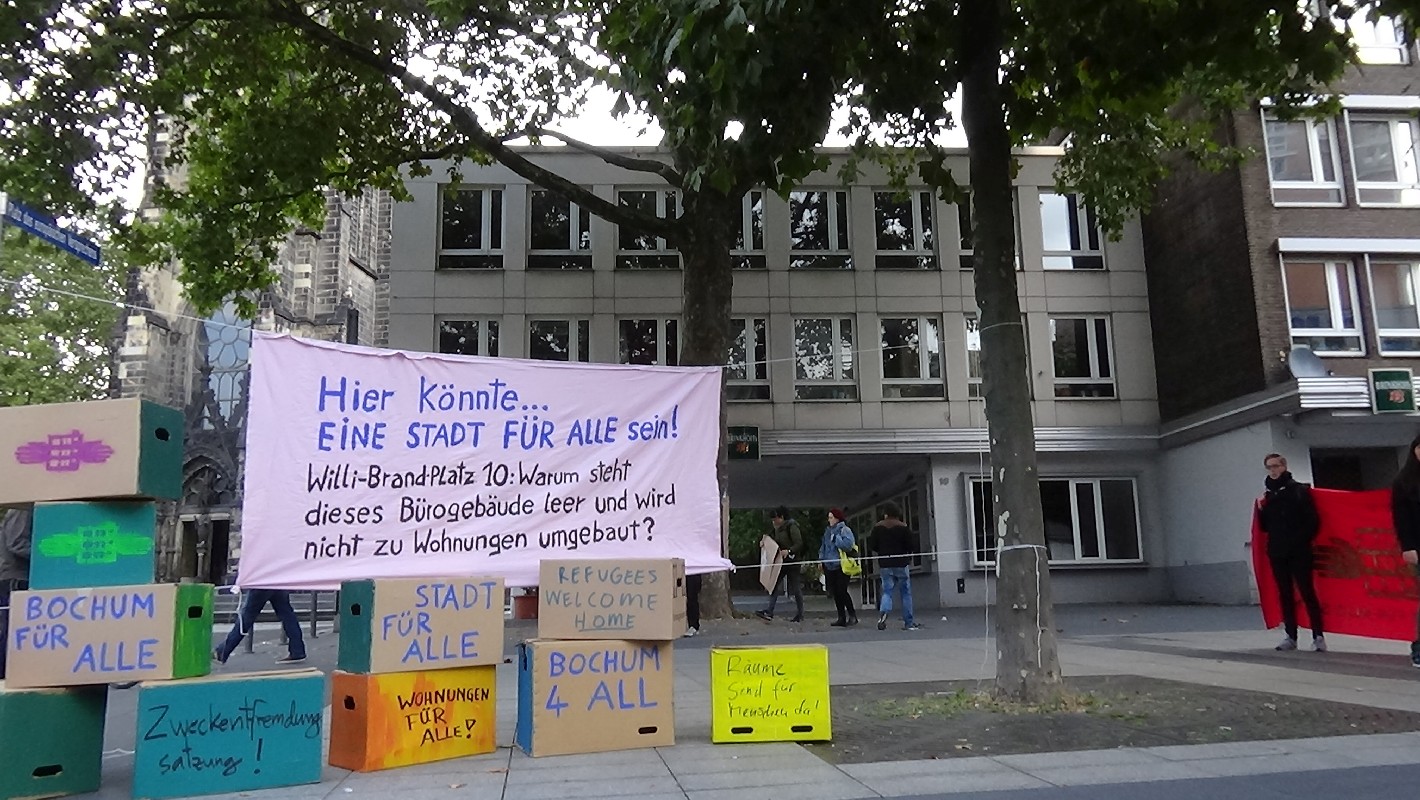 Hier könnte...
EINE STADT FÜR ALLE sein!
Willi-Brand-Platz 10: Warum steht
dieses Bürogebäude leer und wird
nicht zu Wohnungen umgebaut?
BOCHUM
FÜR
ALLE
STADT
FÜR
ALLE
REFUGEES
WELCOME
HOME
Zweckentfremdung
satzung!
WOHNUNGEN
FÜR
ALLE!
BOCHUM
4 ALL
Räume
send für
Menschen da!